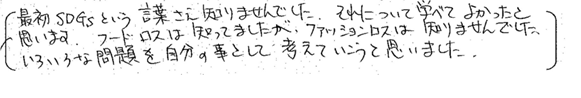 最初SDGsという言葉さえ知りませんでした。それについて学べてよかったと
思います。フードロスは知ってましたが、ファッションロスは知りませんでした。
いろいろな問題を自分の事として考えていこうと思いました。